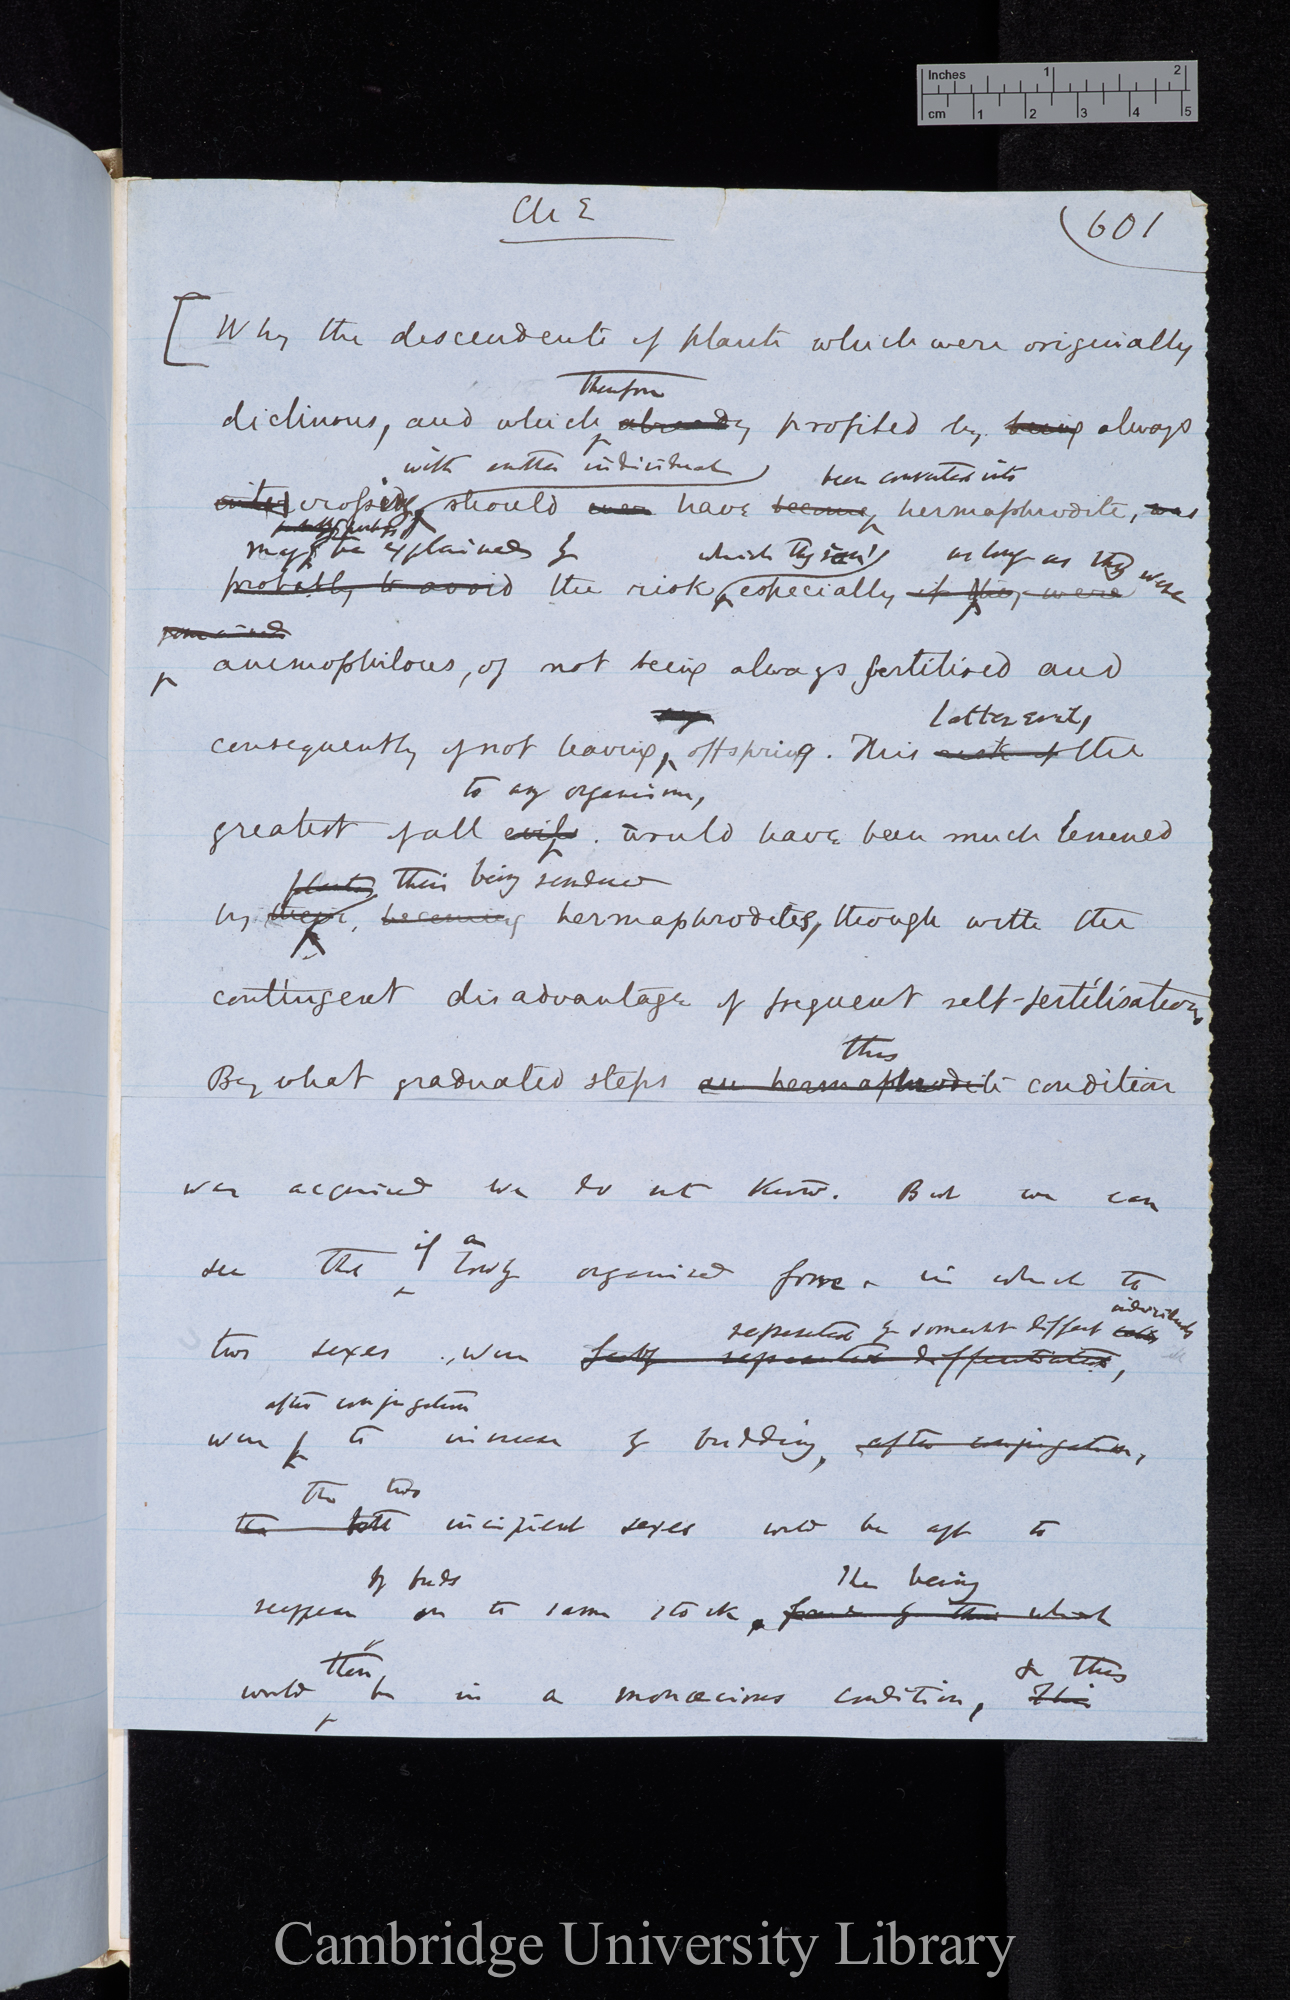 Inches 1 2
cm 1 2 3 4 5
Ch E
601
[Why the descendents of plants which were originally
therefore
diclinous, and which already profited by being always
with another individual been converted into
inter crossing, should ever have become hermaphrodite, was
may be explained by which they ran, as long as they were
probably to avoid the risk, especially if they were
remained
anemophilous, of not being always fertilised and
consequently of not leaving offspring. This risk of the
latter evil,
to any organism,
greatest of all evils. would have been much lessened
plants, their being rendered
by their, becoming hermaphrodites, though with the
contingent disadvantage of frequent self-fertilisation,
this
By what graduated steps an hermaphrodite condition
was acquired we do not know. But we can
if a
see that lowly organised form, in which the
represented by somewhat different cells individuals
two sexes were represented differentiated,
after conjugation
were to increase by budding, after conjugation,
the two
the both incipient sexes would be apt to
by buds The being
reappear on the same stock, which
then & this
would be in a monœcious condition, This
Cambridge University Library